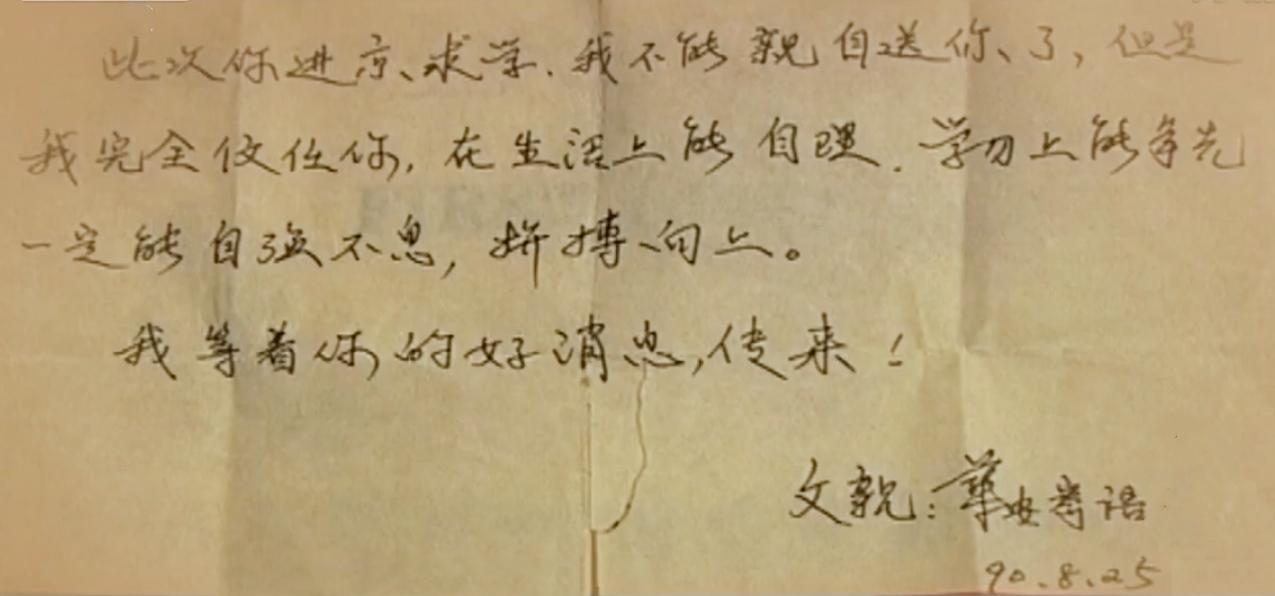 此次你进京求学,我不能亲自送你了,但是
我完全信任你,在生活上能自理.学习上能争先
一定能自强不息,拼搏向上。
我等着你的好消息,传来!
父亲:华安寄语
90.8.25